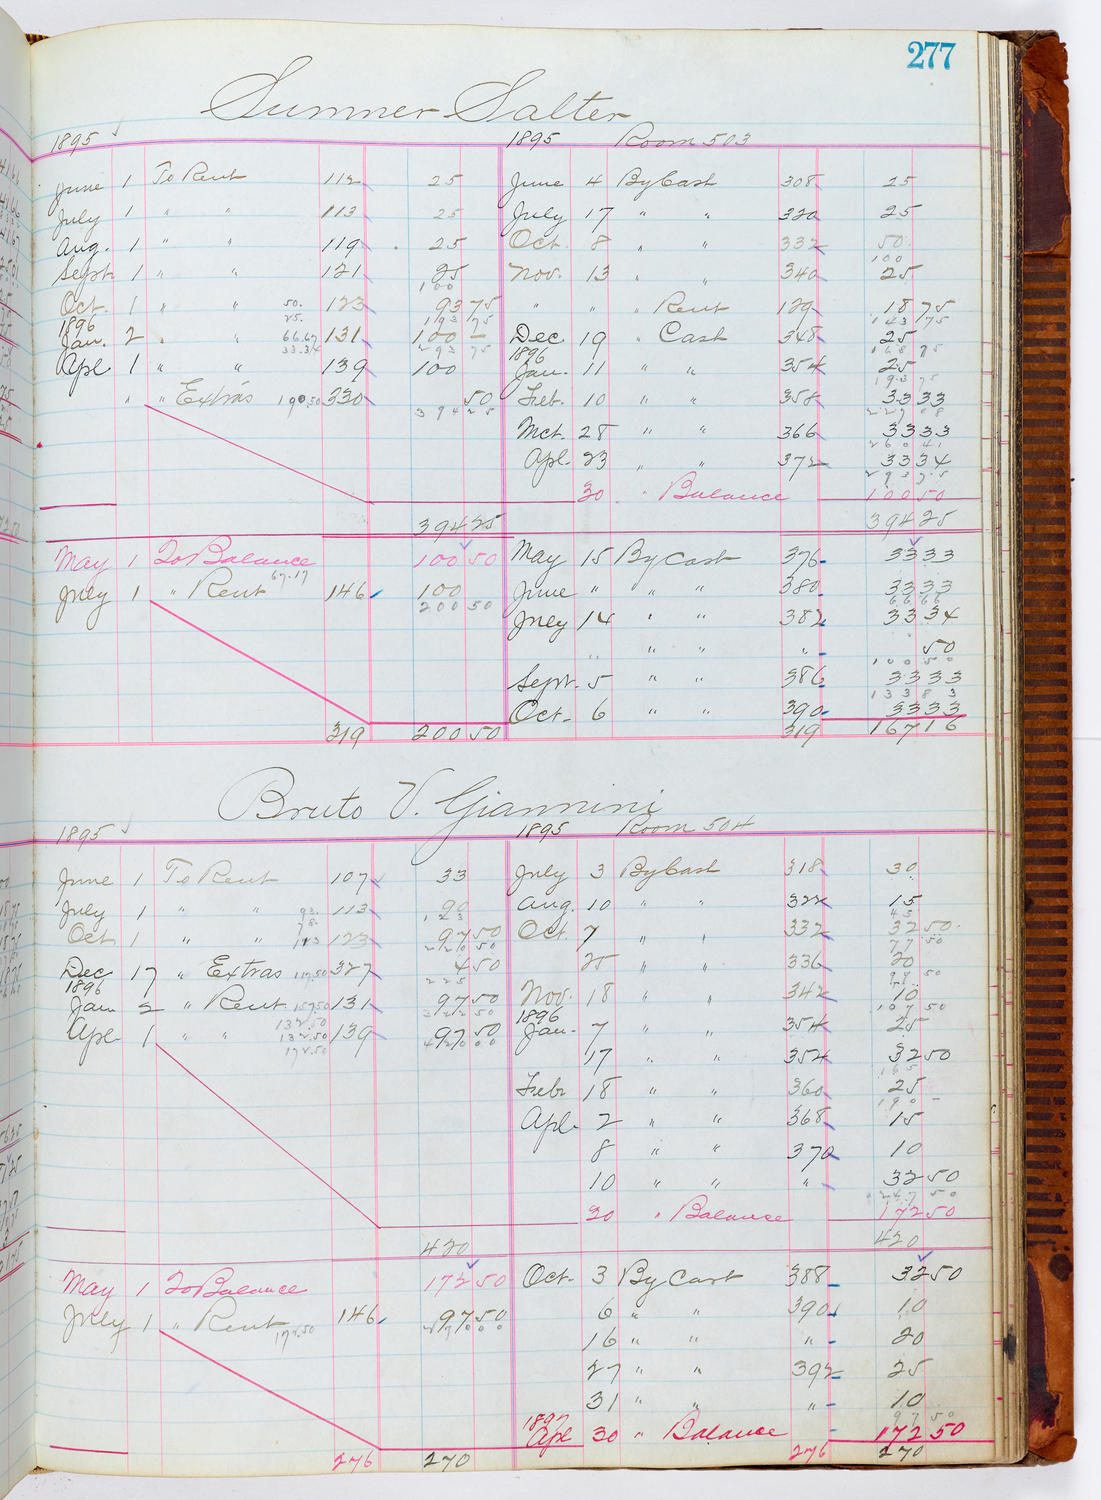 277
Sumner Salter
1895 1895 Room 503
June 1 To Rent 112 25 June 4 By Cash 308 25
July 1 " " 113 25 July 17 " " 320 25
Aug. 1 " " 119 25 Oct. 8 " " 332 50
100
Sept. 1 " " 121 25 Nov. 13 " " 340 25
100
Oct. 1 " " 50. 123 93 75 " " Rent 129 18 75
25. 193 75 143 75
1896
Jan. 2 " " 66.67 131 100 — Dec 19 " Cash 348 25
33.34 293 75 168 75
1896
Apl 1 " " 139 100 Jan. 11 " " 354 25
193 75
" " Extras 100.50 330 50 Feb. 10 " " 358 33 33
394 25 227 08
Mct. 28 " " 366 33 33
260 41
Apl. 23 " " 372 33 34
293 75
30 " Balance 100 50
394 25 394 25
May 1 To Balance 100 50 May 15 By Cash 376 33 33
July 1 " Rent 67.17 146 100 June " " " 380 33 33
200 50 66 66
July 14 " " 382 33 34
" " " " 50
100 50
Sept. 5 " " 386 33 33
133 83
Oct. 6 " " 390 33 33
319 200 50 319 167 16
Bruto V. Giannini
1895 1895 Room 504
June 1 To Rent 107 33 July 3 By Cash 318 30
July 1 " " 93. 113 90 Aug. 10 " " 322 15
78. 123 45
Oct 1 " " 113 123 97 50 Oct. 7 " " 332 32 50
220 50 77 50
Dec 17 " Extras 117.50 327 4 50 25 " " 336 20
225 97 50
1896
Jan 2 " Rent 157.50 131 97 50 Nov. 18 " " 342 10
132.50 322 50 107 50
1896
Apl 1 " " 132.50 139 97 50 Jan. 7 " " 354 25
172.50 420 00
17 " " 354 32 50
165
Feb 18 " " 360 25
190 —
Apl. 2 " " 368 15
8 " " 370 10
10 " " " 32 50
247 50
30 " Balance 172 50
420 420
May 1 To Balance 172 50 Oct. 3 By Cash 388 32 50
July 1 " Rent 146 97 50 6 " " 390 10
172.50 270 00
16 " " " 20
27 " " 392 25
31 " " " 10
97 50
1897
Apl 30 " Balance 172 50
276 270 276 270